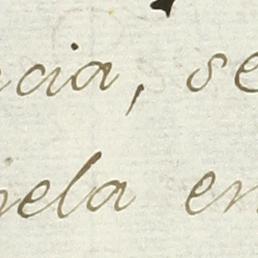 cia, se
ela en